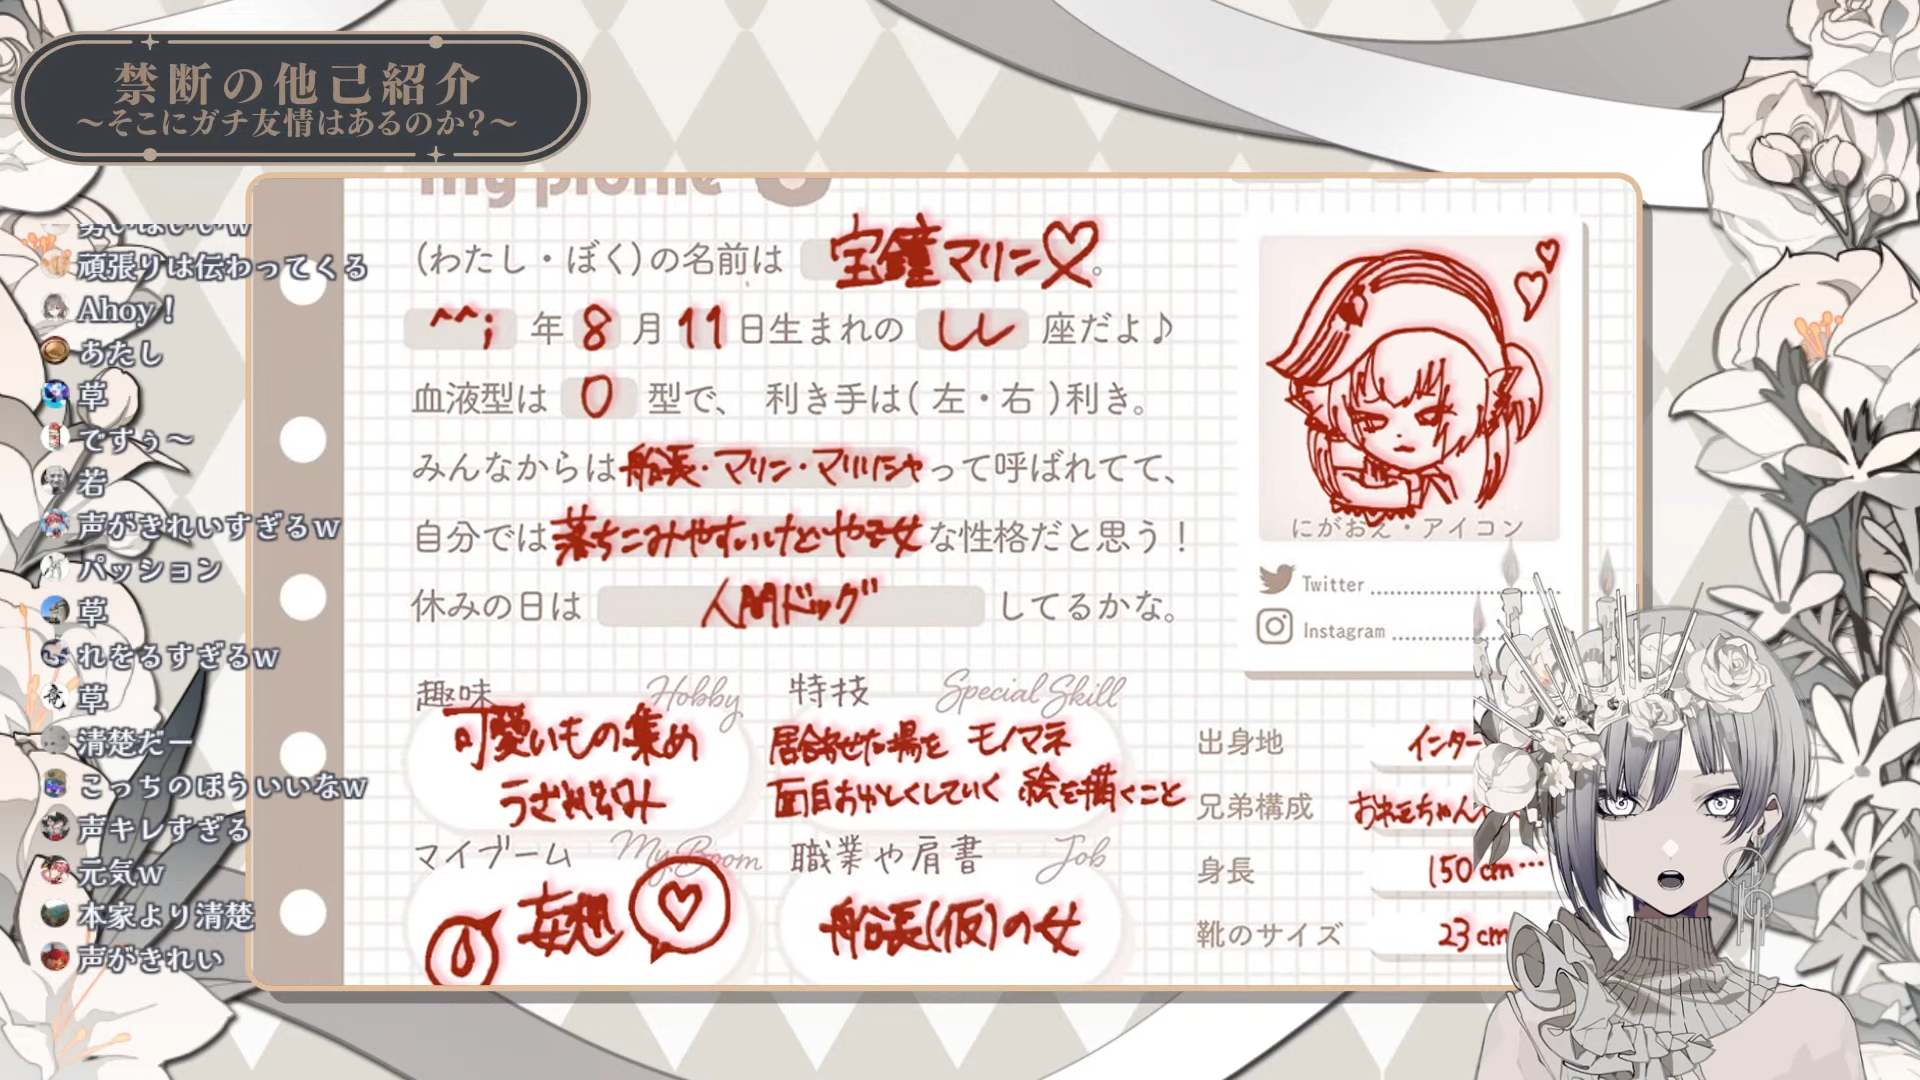 禁断の他己紹介
～そこにガチ友情はあるのか?～
my profile
(わたし・ぼく)の名前は 宝鐘マリン♡。
^^; 年 8 月 11 日生まれの しし 座だよ♪
血液型は O 型で、 利き手は( 左・右 )利き。
みんなからは 船長・マリン・マリリンちゃ って呼ばれてて、
自分では 落ちこみやすいけどやる女 な性格だと思う！
休みの日は 人間ドッグ してるかな。
にがおえ・アイコン
Twitter
Instagram
趣味 Hobby
可愛いもの集め
うさぎ
特技 Special Skill
居合わせた場を モノマネ
面白おかしくしていく 絵を描くこと
マイブーム My Boom
妄想
職業や肩書 Job
船長(仮)の女
出身地 インター
兄弟構成 おねえちゃん
身長 150cm…
靴のサイズ 23cm
頑張りは伝わってくる
Ahoy！
あたし
草
ですぅ～
若
声がきれいすぎるw
パッション
草
れをるすぎるw
草
清楚だー
こっちのほういいなw
声キレすぎる
元気w
本家より清楚
声がきれい